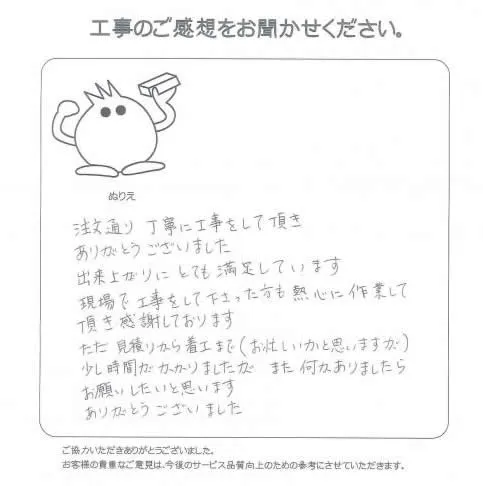 工事のご感想をお聞かせください。
ぬりえ
注文通り 丁寧に工事をして頂き
ありがとうございました
出来上がりに とても満足しています
現場で工事をして下さった方も熱心に作業して
頂き感謝しております
ただ 見積りから着工まで(お忙しいかと思いますが)
少し時間がかかりましたが また何かありましたら
お願いしたいと思います
ありがとうございました
ご協力いただきありがとうございました。
お客様の貴重なご意見は、今後のサービス品質向上のための参考にさせていただきます。